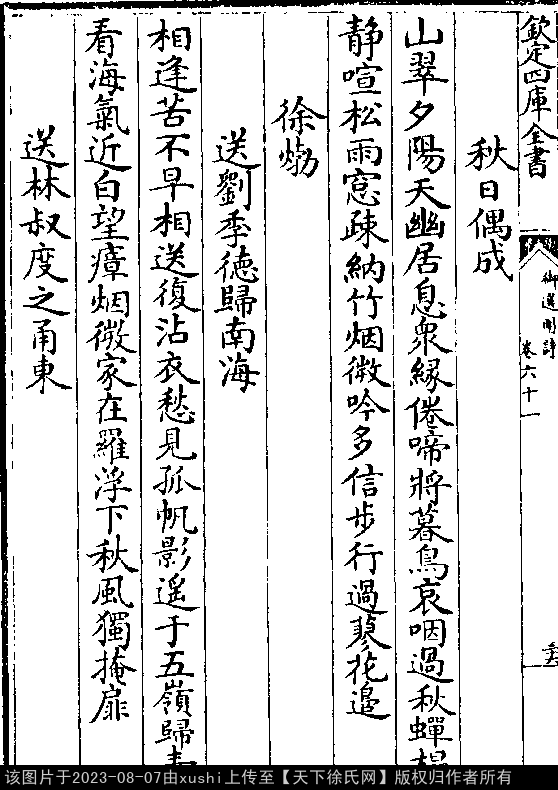 欽定四庫全書
御選明詩
卷六十一
秋日偶成
山翠夕陽天幽居息衆緣倦啼將暮鳥哀咽過秋蟬
静喧松雨窓疎納竹烟微吟多信步行過蓼花邉
徐𤊹
送劉季徳歸南海
相逢苦不早相送復沾衣愁見孤帆影遥于五嶺歸
看海氣近白望瘴烟微家在羅浮下秋風獨掩扉
送林叔度之甬東
该图片于2023-08-07由xushi上传至【天下徐氏网】版权归作者所有